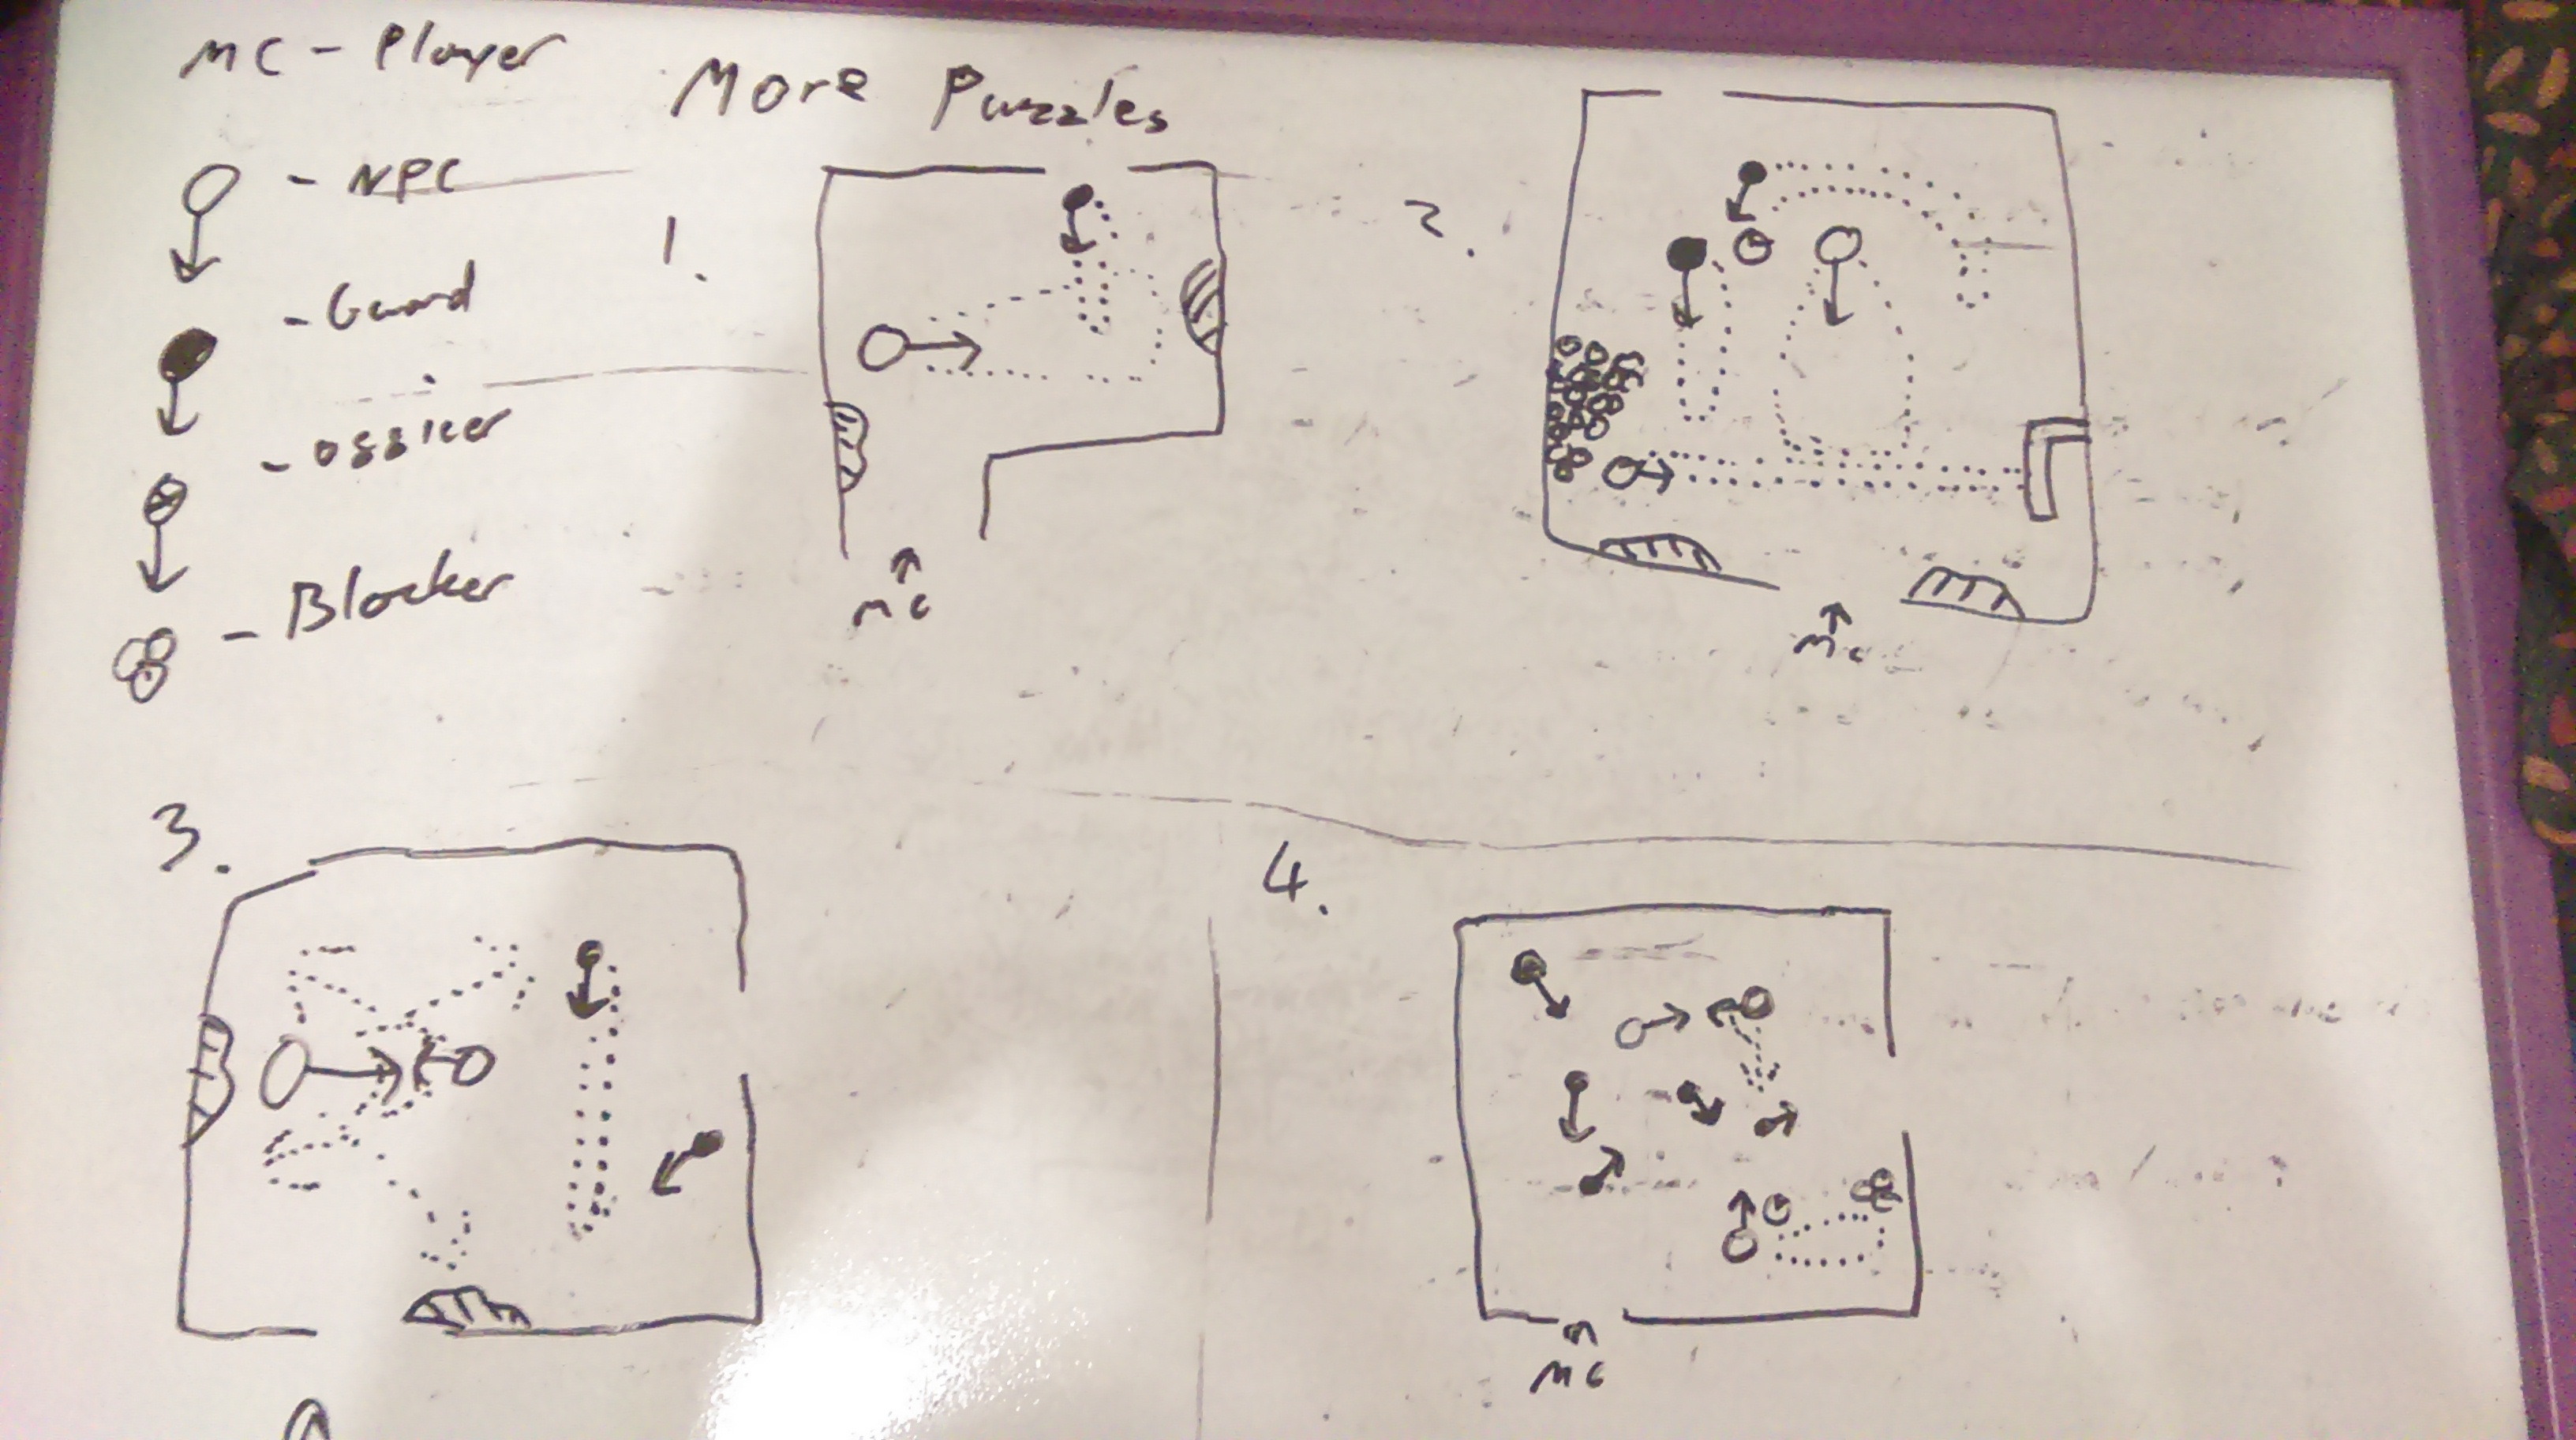 MC - Player
More Puzzles
- NPC
- Guard
- ossicer
- Blocker
1.
MC
2.
Mc
3.
4.
MC